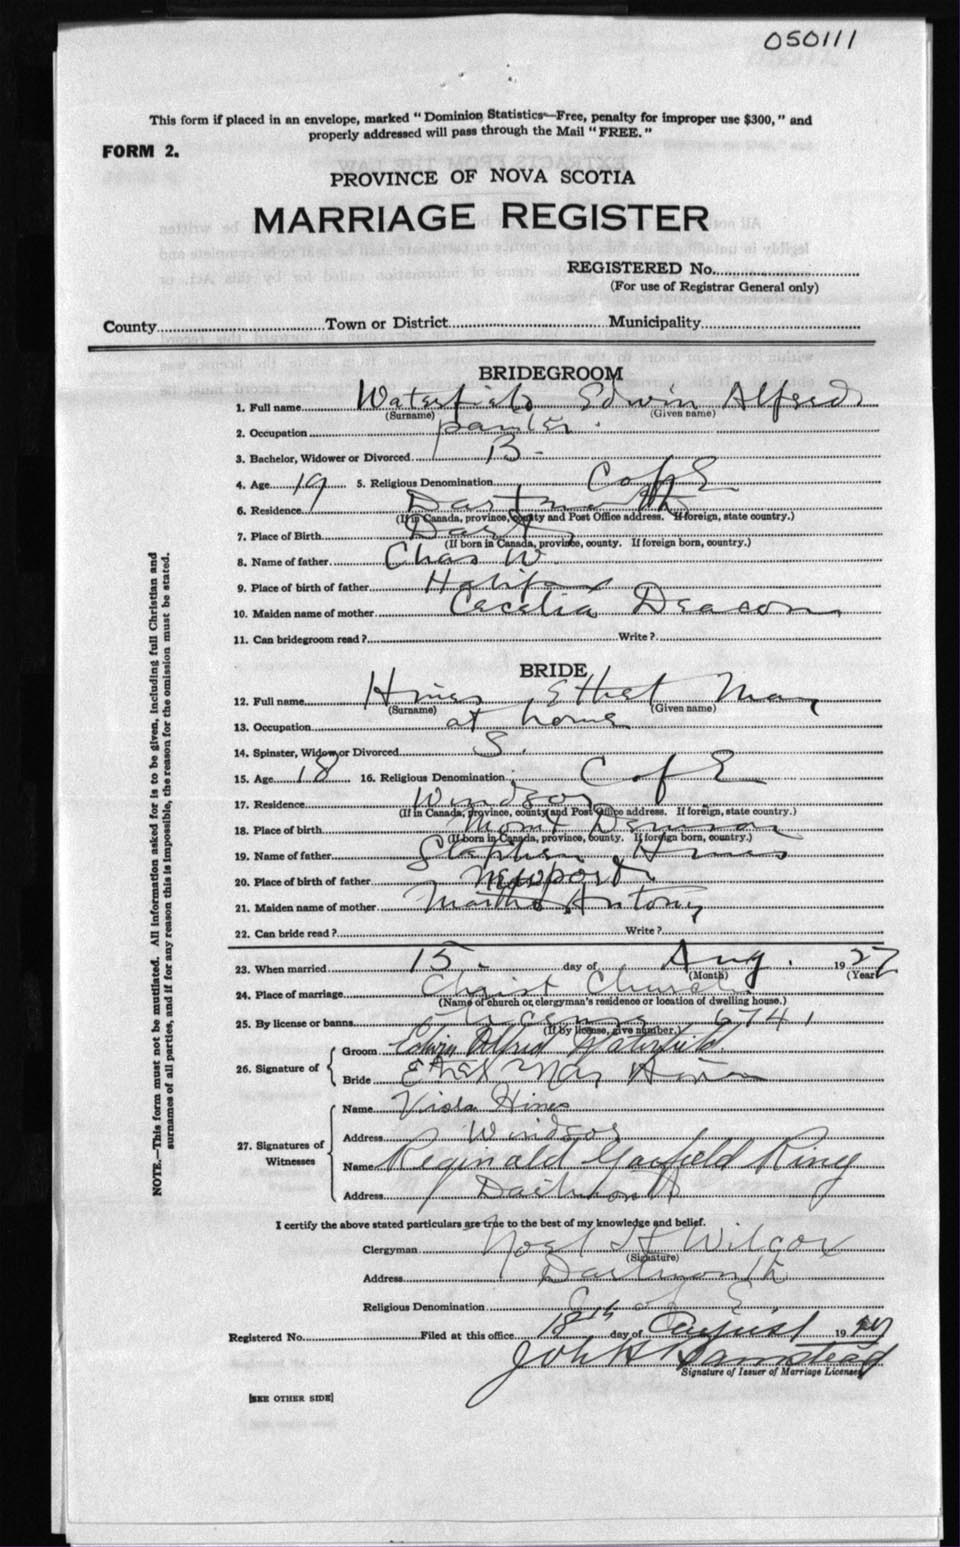 050111
This form if placed in an envelope, marked "Dominion Statistics—Free, penalty for improper use $300," and
properly addressed will pass through the Mail "FREE."
FORM 2.
PROVINCE OF NOVA SCOTIA
MARRIAGE REGISTER
REGISTERED No.
(For use of Registrar General only)
County Town or District Municipality
BRIDEGROOM
1. Full name Waterfield Edwin Alfred
(Surname) (Given name)
2. Occupation painter
3. Bachelor, Widower or Divorced B -
4. Age 19 5. Religious Denomination C of E
6. Residence Dartmouth
(If in Canada, province, county and Post Office address. If foreign, state country.)
7. Place of Birth Dart
(If born in Canada, province, county. If foreign born, country.)
8. Name of father Chas W.
9. Place of birth of father Halifax
10. Maiden name of mother Cecelia Deacon
11. Can bridegroom read? Write?
BRIDE
12. Full name Hines Ethel May
(Surname) (Given name)
13. Occupation at home
14. Spinster, Widow or Divorced S.
15. Age 18 16. Religious Denomination C of E
17. Residence Windsor
(If in Canada, province, county and Post Office address. If foreign, state country.)
18. Place of birth Mont Denson
(If born in Canada, province, county. If foreign born, country.)
19. Name of father Stephen Hines
20. Place of birth of father Newport
21. Maiden name of mother Martha Antony
22. Can bride read? Write?
23. When married 15 - day of Aug. 1927
(Month) (Year)
24. Place of marriage Christ Church
(Name of church or clergyman's residence or location of dwelling house.)
25. By license or banns License 6741
(If by license, give number.)
26. Signature of
Groom Edwin Alfred Waterfield
Bride Ethel May Hines
27. Signatures of Witnesses
Name Viola Hines
Address Windsor
Name Reginald Garfield Ring
Address Dartmouth
I certify the above stated particulars are true to the best of my knowledge and belief.
Clergyman Noel H Wilcox
(Signature)
Address Dartmouth
Religious Denomination C of E
Registered No. Filed at this office 18th day of August 1927
John
Signature of Issuer of Marriage Licenses
[SEE OTHER SIDE]
NOTE.—This form must not be mutilated. All information asked for is to be given, including full Christian and
surnames of all parties, and if for any reason this is impossible, the reason for the omission must be stated.